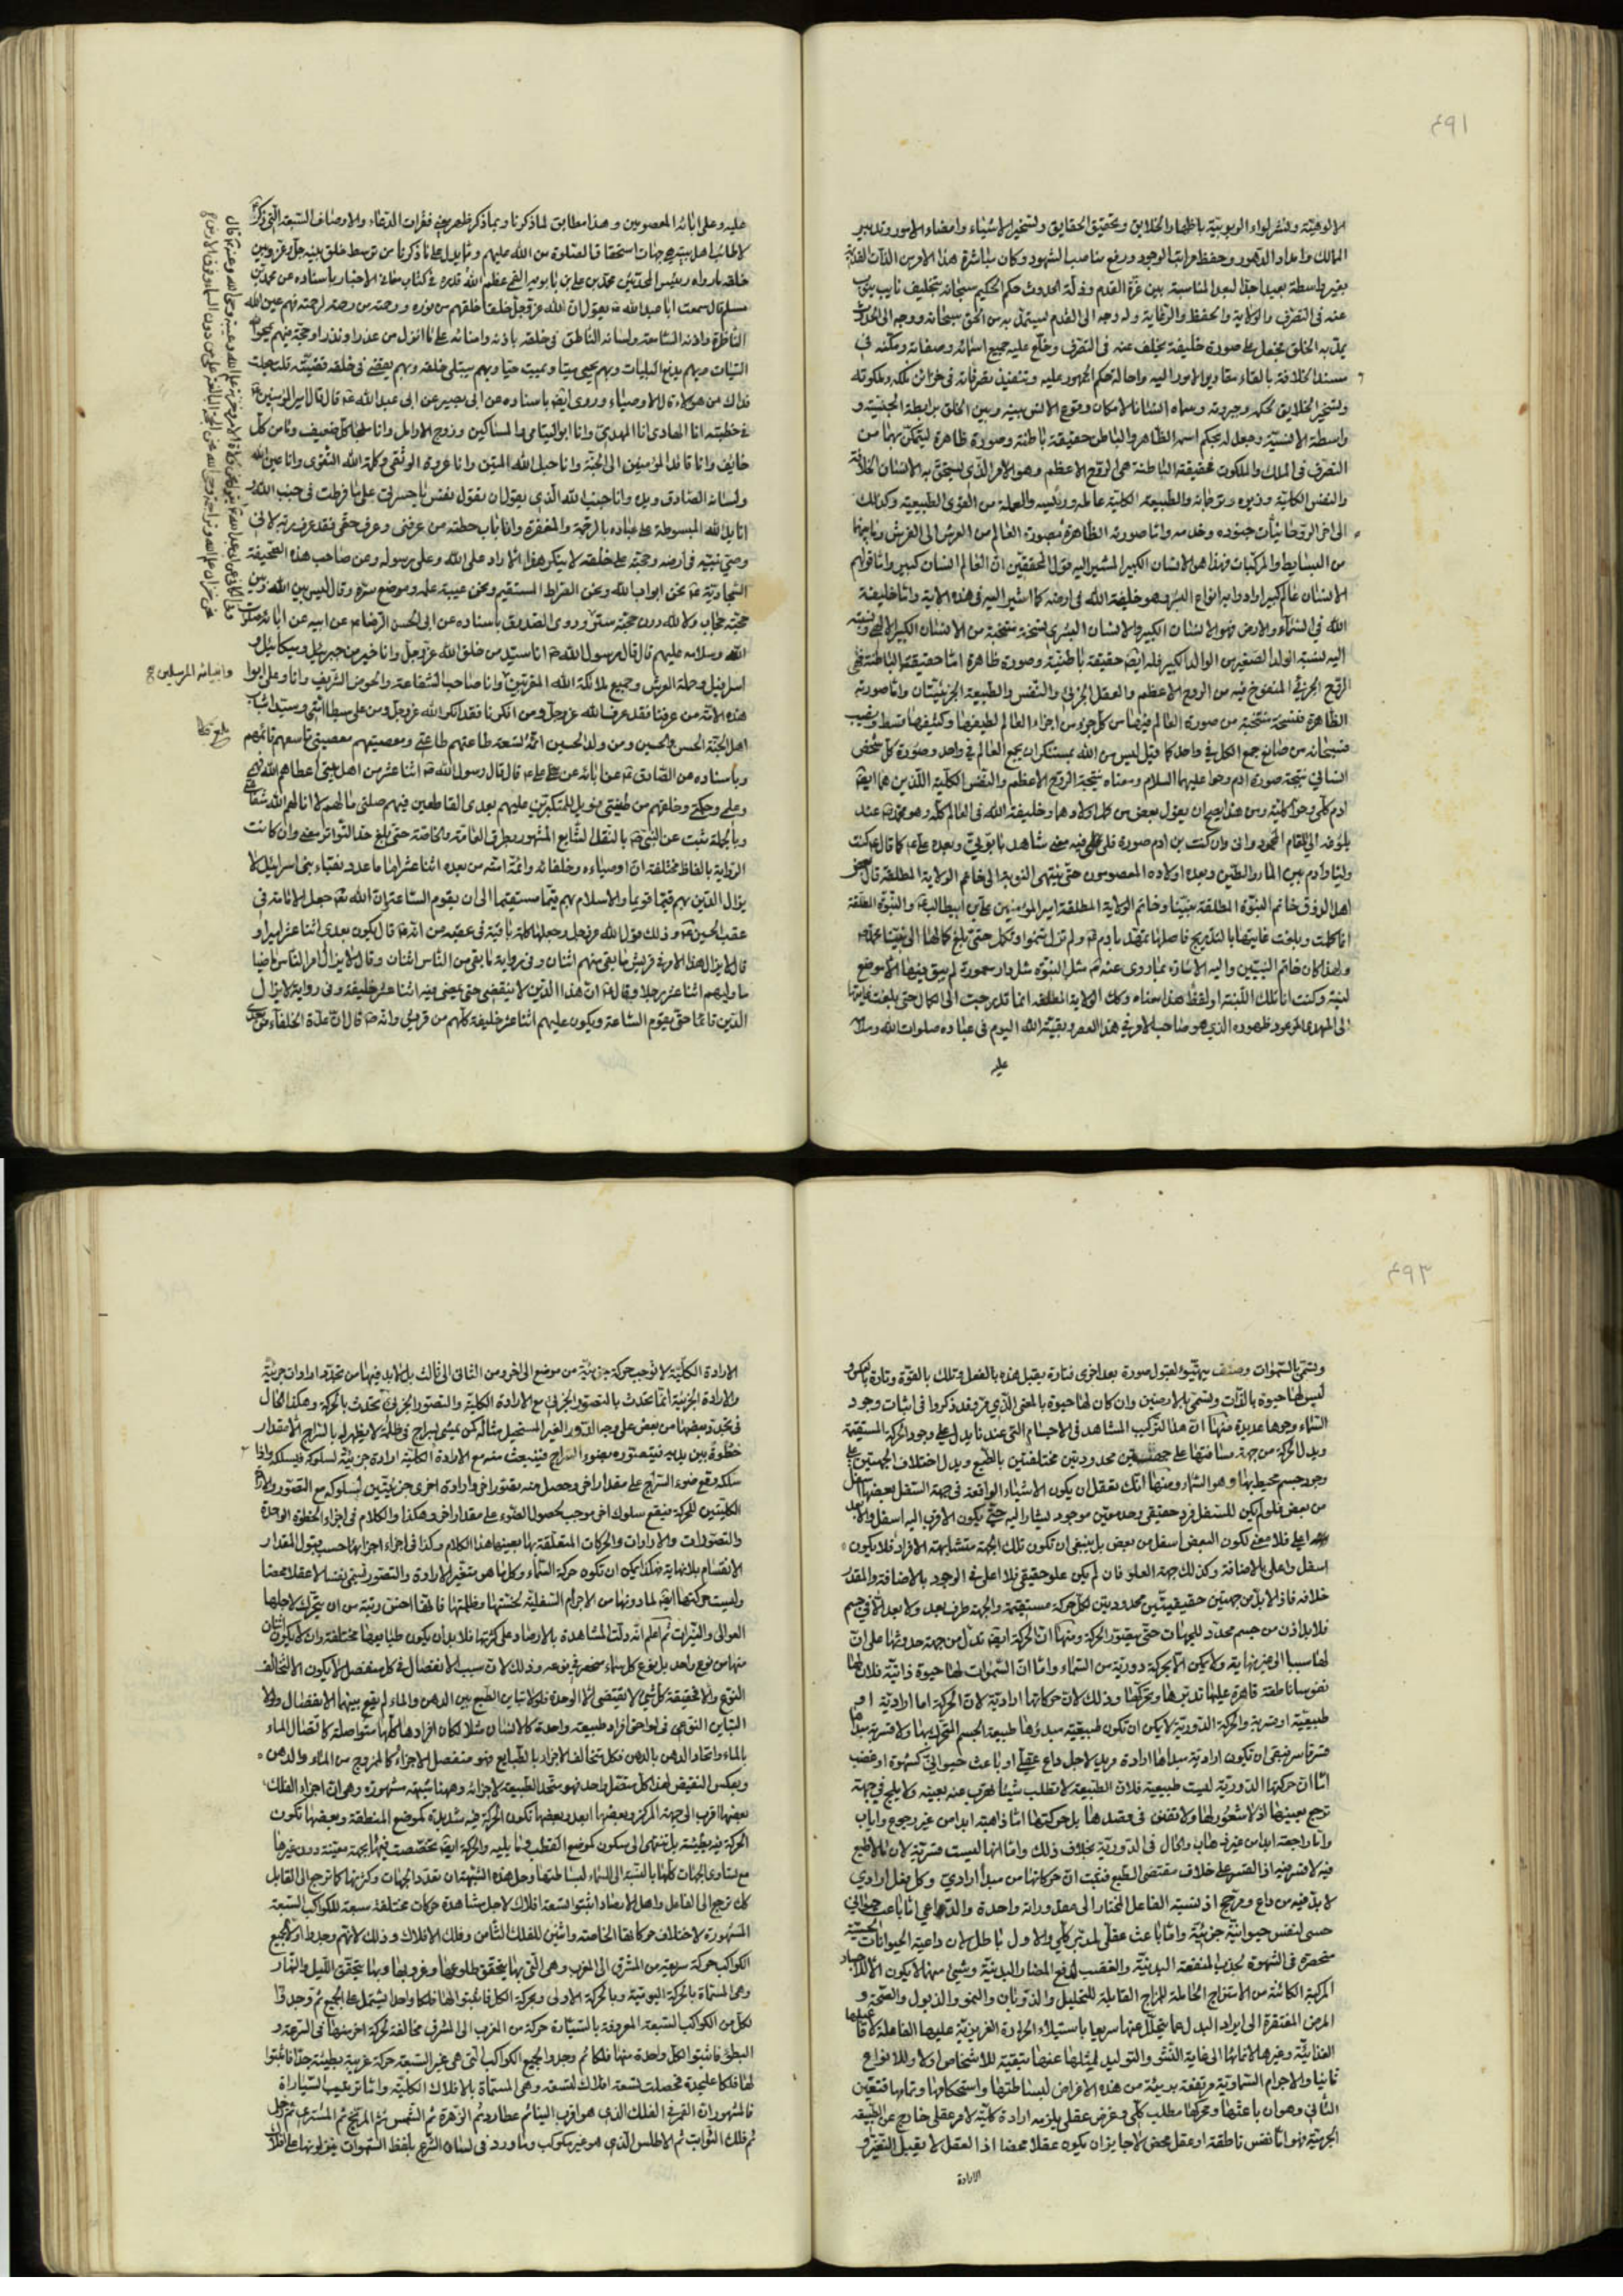 ٤٩١
الالوهيّة ونشر لواء الربوبيّة باظهار الخلايق وتحقيق الحقايق وتسخير الاشياء وامضاء الامور وتدبير
الممالك وامداد الدهور وحفظ مراتب الوجود ورفع مناصب الشهود وكان مباشرة هذا الامر من الذات القديمة
بغير واسطة بعيدا جدا لبعد المناسبة بين عزّة القدم وذلّة الحدوث حكم الحكيم سبحانه بتخليف نايب ينوب
عنه فى التصرّف والولاية والحفظ والرّعاية وله وجه الى القدم يستمدّ به من الحق سبحانه ووجه الى الحدوث
يمدّ به الخلق فجعل على صورة خليفة يخلف عنه فى التصرّف وخلع عليه جميع اسمائه وصفاته ومكّنه فى
مسند الخلافة بالقاء مقاليد الامور اليه واحالة حكم الجمهور عليه وتنفيذ تصرفاته فى خزائن ملكه وملكوته
وتسخير الخلايق لحكمه وجبروته وسماه انسانا لامكان وقوع الانس بينه وبين الخلق برابطة الجنسيّة و
واسطة الانسيّة وجعل له بحكم اسميه الظاهر والباطن حقيقة باطنة وصورة ظاهرة ليتمكّن بهما من
التصرّف فى الملك والملكوت فحقيقته الباطنة هى الروح الاعظم وهو الامر الذى يستحقّ به الانسان الخلافة
والنفس الكلية وزيره وترجمانه والطبيعة الكلية عامله ورئيسه والعملة من القوى الطبيعية وكذلك
الى اخر الروحانيّات جنوده وخدمه وامّا صورته الظاهرة فصورة العالم من العرش الى الفرش وما بينهما
من البسايط والمركبات فهذا هو الانسان الكبير المشير اليه قول المحققين انّ العالم انسان كبير وامّا قولهم
الانسان عالم كبير ارادوا به انواع البشر وهو خليفة الله فى ارضه كما اشير اليه فى هذه الاية وامّا خليفة
الله فى السّماء والارض فهو الانسان الكبير والانسان البشرى نسخة منتخبة من الانسان الكبير الالهى ونسبته
اليه نسبة الولد الصغير من الوالد الكبير فله ايضا حقيقة باطنيّة وصورة ظاهرة امّا حقيقته الباطنة فهى
الرّوح الجزئى المنفوخ فيه من الروح الاعظم والعقل الجزئى والنّفس والطبيعة الجزئيّتان وامّا صورته
الظاهرة فنسخة منتخبة من صورة العالم فيها من كل جزء من اجزاء العالم لطيفها وكثيفها قسط ونصيب
فسبحانه من صانع جمع الكل فى واحد كما قيل ليس من الله بمستنكر ان يجمع العالم فى واحد وصورة كل شخص
انسانى نتيجة صورة ادم وحوا عليهما السلام ومعناه نتيجة الروح الاعظم والنفس الكلية اللذين هما ايضا
ادم كلّى وحوا كلّية ومن هذا يصح ان يقول بعض من كمل اولادهما وخليفة الله فى العالم كلّه وهو محمّد عند
بلوغه الى المقام المحمود وانى وان كنت بن ادم صورة فلى فيه معنى شاهد بابوّتى وبعده على كما قال كنت
وليّا وادم بين الماء والطّين وبعده اولاده المعصومون حتى ينتهى النوبة الى خاتم الولاية المطلقة قال بعض
اهل الذوق خاتم النبوّة المطلقة نبيّنا وخاتم الولاية المطلقة امير المؤمنين على بن ابيطالب والنبوّة المطلقة
انما كملت وبلغت غايتها بالتدريج فاصلها تمهّد بادم ولم تزل تنمو وتكمل حتى بلغ كمالها الى نبيّنا محمد
ولهذا كان خاتم النبيّين واليه الاشارة بما روى عنه مثل النبوّة مثل دار معمورة لم يبق فيها الا موضع
لبنة وكنت انا تلك اللّبنة او لفظ هذا معناه وكك الولاية المطلقة انما تدرجت الى الكمال حتى بلغت غايتها
الى المهدى الموعود ظهوره الذى هو صاحب الامر فى هذا العصر وبقيّة الله اليوم فى عباده صلوات الله وسلامه
عليه
عليه وعلى ابائه المعصومين وهذا مطابق لما ذكرنا وبما ذكر ظهر معنى فقرات الدعاء والاوصاف السّبعة التى ذكر
لاطائب اهل بيته هى جهات استحقاق الصلوة من الله عليهم وممّا يدل على ما ذكرنا من توسط خلق بينه جل وعز وبين
خلقه ما رواه رئيس المحدّثين محمّد بن على بن بابويه القمى عظّم الله قدره فى كتاب معانى الاخبار باسناده عن محمد بن
مسلم قال سمعت ابا عبد الله يقول ان الله عز وجل خلقا خلقهم من نوره ورحمة من رحمته لرحمته فهم عين الله
الناظرة واذنه السّامعة ولسانه الناطق فى خلقه باذنه وامناؤه على ما انزل من عذر او نذر او حجّة فبهم يمحو الله
السّيّات وبهم يدفع البليات وبهم يحيى ميتا ويميت حيّا وبهم يبتلى خلقه وبهم يقضى فى خلقه قضيّته قلت جعلت
فداك من هؤلاء قال الاوصياء وروى ايضا باسناده عن ابى بصير عن ابى عبد الله قال قال امير المؤمنين
فى خطبته انا الهادى انا المهدى وانا ابو اليتامى والمساكين وزوج الارامل وانا ملجأ كل ضعيف ومأمن كل
خايف وانا قائد المؤمنين الى الجنّة وانا حبل الله المتين وانا عروة الوثقى وكلمة الله التقوى وانا عين الله
ولسانه الصّادق ويده وانا جنب الله الّذى يقول ان تقول نفس يا حسرتى على ما فرطت فى جنب الله و
انا يد الله المبسوطة على عباده بالرحمة والمغفرة وانا باب حطّة من عرفنى وعرف حقّى فقد عرف ربه لانى
وصىّ نبيّه فى ارضه وحجته على خلقه لا ينكر هذا الا رادّ على الله وعلى رسوله وعن صاحب هذه الصحيفة
السّجادية نحن ابواب الله ونحن الصّراط المستقيم ونحن عيبة علمه وموضع سرّه وقال ليس بين الله وبين
حجّته حجاب ولا لله دون حجّته ستر وروى الصّدوق باسناده عن ابى الحسن الرّضا عن ابيه عن ابائه صلوات
الله وسلامه عليهم قال قال رسول الله انا سيّد من خلق الله عز وجل وانا خير من جبرئيل وميكائيل و
اسرافيل وحملة العرش وجميع ملائكة الله المقرّبين وانا صاحب الشفاعة والحوض الشّريف وانا وعلى ابوا
وانبيائه المرسلين
هذه الامّة من عرفنا فقد عرف الله عز وجل ومن انكرنا فقد انكر الله عز وجل ومن على سبطا امّتى وسيّدا شباب
اهل الجنّة الحسن والحسين ومن ولد الحسين ائمّة تسعة طاعتهم طاعتى ومعصيتهم معصيتى تاسعهم قائمهم
وباسناده عن الصّادق عن ابائه عن على قال قال رسول الله اثنا عشر من اهل بيتى اعطاهم الله فهمى
وعلمى وحكمى وخلقهم من طينتى فويل للمتكبّرين عليهم بعدى القاطعين فيهم صلتى ما لهم لا انالهم الله شفاعتى
وبالجملة ثبت عن النبى بالنقل الشّايع المشهور بطرق العامّة والخاصّة حتى بلغ حدّ التّواتر معنى وان كانت
الرّواية بالفاظ مختلفة انّ اوصياءه وخلفائه وائمّة امّته من بعده اثنا عشر اماما عدد نقباء بنى اسرائيل لا
يزال الدّين بهم قيّما قويما والاسلام بهم قيّما مستقيما الى ان يقوم السّاعة وان الله جعل الامامة فى
عقب الحسين وذلك قول الله عز وجل وجعلها كلمة باقية فى عقبه وانّه قال يكون بعدى اثنا عشر اميرا و
قال لا يزال هذا الامر فى قريش ما بقى منهم اثنان وفى رواية ما بقى من النّاس اثنان وقال لا يزال امر النّاس ماضيا
ما وليهم اثنا عشر رجلا وقال انّ هذا الدّين لا ينقضى حتى يمضى فيه اثنا عشر خليفة وفى رواية لا يزال
الدّين قائما حتى يقوم السّاعة ويكون عليهم اثنا عشر خليفة كلّهم من قريش وانّه قال انّ عدّة الخلفاء من بعدى
٤٩٣
وتسمّى بالسّموات وصنف يتهيّؤ لقبول صورة بعد اخرى فتارة يقبل هذه بالفعل وتلك بالقوّة وتارة بالعكس و
ليس لها حيوة بالذّات وتسمّى بالارضين وان كان لها حيوة بالمعنى الّذى مر وقد ذكروا فى اثبات وجود
السّماء وجوها عديدة منها انّ هذا التركيب المشاهد فى الاجسام التى عندنا يدل على وجود الحركة المستقيمة
ويدل الحركة من جهة مسافتها على جهتين محدودتين مختلفتين بالطبع ويدل اختلاف الجهتين على
وجود جسم محيط بها وهو السّماء ومنها انك تعقل ان يكون الاشياء الواقعة فى جهة السفل بعضها اسفل
من بعض فلو لم يكن للسفل فرد حقيقى وحد معيّن موجود يشار اليه حتى يكون الاقرب اليه اسفل والابعد
اعلى فلا معنى لكون البعض اسفل من بعض بل ينبغى ان تكون تلك الجهة متشابهة الافراد فلا يكون
اسفل واعلى بالاضافة وكذلك جهة العلو فان لم يكن علو حقيقى فلا اعلى فى الوجود بالاضافة والمقدّر
خلافه فاذا لا بدّ من جهتين حقيقيتين محدودتين لكل حركة مستقيمة والجهة طرف بعد ولا بعد الا فى جسم
فلا بد اذن من جسم محدّد للجهات حتى يتصور الحركة ومنها انّ الحركة ايضا تدل من جهة حدوثها على انّ
لها سببا الى غير نهاية ولا يمكن الا بحركة دورية من السّماء وامّا انّ السّموات لها حيوة ذاتية فلان لها
نفوسا ناطقة قاهرة عليها تدبّرها وتحرّكها وذلك لان حركاتها ارادية لان الحركة اما ارادية او
طبيعيّة او قسرية والحركة الدّورية لا يمكن ان تكون طبيعيّة مبدؤها طبيعة الجسم المتحرك بها ولا قسرية مبدأها
قسر قاسر فبقى ان تكون ارادية مبدأها ارادة مريد لاجل داع عقلى او باعث حيوانى كشهوة او غضب
امّا انّ حركتها الدّورية ليست طبيعية فلان الطبيعة لا تطلب شيئا تهرب عنه بعينه ولا يلج فى جهة
ترجع بعينها اذ لا شعور لها ولا تفنّن فى قصدها بل حركتها امّا ذاهبة ابدا من غير رجوع واياب
وامّا راجعة ابدا من غير ذهاب والحال فى الدّورية بخلاف ذلك وامّا انها ليست قسرية لان ما لا طبع
فيه لا قسر فيه اذ القسر على خلاف مقتضى الطبع فثبت انّ حركاتها من مبدأ ارادى وكل فعل ارادى
لا بدّ فيه من داع ومرجح اذ نسبة الفاعل المختار الى مقدوراته واحدة والدّاعى امّا باعث حيوانى
حسى لنفس حيوانيّة جزئيّة وامّا باعث عقلى لمدبّر كلّى والاول باطل لان داعية الحيوانات الحسيّة
منحصرة فى الشهوة لجذب المنفعة البدنيّة والغضب لدفع المضار البدنيّة وشىء منها لا يكون الا للاجساد
المركبة الكائنة من الامتزاج الحاملة للمزاج القابلة للتحليل والذّوبان والنمو والذبول والصّحة و
المرض المفتقرة الى ايراد البدل عما يتحلّل عنها سريعا باستيلاء الحرارة الغريزيّة عليها الفاعلة لافاعيلها
الغذائيّة وغيرها لانمائها الى غاية النّشو والتوليد لمثلها عنها تبقية للاشخاص اولا وللانواع
ثانيا والاجرام السّماويّة مرتفعة بريئة من هذه الاغراض لبساطتها واستحكامها وتمامها فتعيّن
الثّانى وهو ان باعثها ومحركها مطلب كلّى وغرض عقلى يلزمه ارادة كلية لامر عقلى خارج عن الطبيعة
الجرميّة فهو امّا نفس ناطقة او عقل محض لا جايز ان يكون عقلا محضا اذ العقل لا يقبل التغيّر و
الارادة
الارادة الكلّية لا توجب حركة جزئيّة من موضع الى اخر ومن الثانى الى ثالث بل لا بد فيها من تجدّد ارادات جزئيّة
والارادة الجزئيّة انّما تحدث بالتصوّر الجزئى مع الارادة الكليّة والتصوّر الجزئى تحدث بالحركة وهكذا الحال
فى تجدد بعضها من بعض على وجه الدّور الغير المستحيل مثاله كمن يمشى بسراج فى ظلمة لا يظهر له بالسّراج الا مقدار
خطوة بين يديه فيتصوّره بضوء السّراج فينبعث منه مع الارادة الكليّة ارادة جزئيّة لسلوكه فيسلكه واذا
سلكه وقع ضوء السّراج على مقدار اخر وحصل منه تصوّر اخر وارادة اخرى جزئيّتين لسلوكه مع التصوّر والارادة
الكليتين للحركة فيقع سلوك اخر موجب لحصول الضّوء على مقدار اخر وهكذا والكلام فى اجزاء الخطوة الواحدة
والتصوّرات والارادات والحركات المتعلّقة بها بعينه هذا الكلام وكذا فى اجزاء اجزائها حسب قبول المقدار
الانقسام بلا نهاية فهكذا يمكن ان تكون حركة السّماء وكلّما هو متغيّر الارادة والتصوّر تسمّى نفسا لا عقلا محضا
وليست حركتها ايضا لما دونها من الاجرام السّفليّة لخسّتها وظلمتها فانّها اخسّ رتبة من ان يتحرّك لاجلها
العوالى والنيّرات ثم اعلم انّه دلّت المشاهدة بالارصاد على كثرتها فلا بد ان يكون طبايعها مختلفة وان لا يكون اثنان
منها من نوع واحد بل نوع كل سماء منحصر فى فرده وذلك لان سبب الانفصال فى كل منفصل لا يكون الا لتخالف
النوع والا فحقيقة كل شىء لا يقتضى الا الوحدة فلولا تباين الطبع بين الدهن والماء لم يقع بينهما الانفصال ولولا
التباين النوعى فى لواحق افراد طبيعة واحدة كالانسان مثلا لكان افرادها كلّها متواصلة كاتّصال الماء
بالماء واتحاد الدهن بالدهن فكل متخالف الاجزاء بالطّبايع فهو منفصل الاجزاء كالممزوج من الماء والدهن
وبعكس النقيض لهذا كل متصل واحد فهو متّحد الطبيعة لاجزائه وههنا شبهة مشهورة وهى انّ اجزاء الفلك
بعضها اقرب الى جهة المركز وبعضها ابعد وبعضها تكون الحركة فيه شديدة كموضع المنطقة وبعضها تكون
الحركة فيه بطيئة بل تنتهى الى سكون كموضع القطب وما يليه والحركة ايضا تخصّصت فيها بجهة معيّنة دون غيرها
مع تساوى الجهات كلّها بالنسبة الى السّماء لبساطتها وحل هذه الشّبهة ان تعدّد الجهات وكثرتها كما ترجع الى القابل
كك ترجع الى الفاعل واهل الارصاد اثبتوا تسعة افلاك لاجل مشاهدة حركات مختلفة سبعة للكواكب السّبعة
المشهورة لاختلاف حركاتها الخاصّة واثنين للفلك الثامن وفلك الافلاك وذلك لانّهم وجدوا اولا لجميع
الكواكب حركة سريعة من المشرق الى المغرب وهى الّتى بها يتحقّق طلوعها وغروبها وبها يتحقّق اللّيل والنّهار
وهى المسمّاة بالحركة اليوميّة وبالحركة الاولى وبحركة الكل فاثبتوا لها فلكا واحدا يشتمل على الجميع ثم وجدوا
لكل من الكواكب السّبعة المعروفة بالسّيّارة حركة من المغرب الى المشرق مخالفة لحركة اخر منها فى السّرعة و
البطؤ فاثبتوا لكل واحدة منها فلكا ثم وجدوا لجميع الكواكب الّتى هى غير السّبعة حركة غربية بطيئة جدّا فاثبتوا
لها فلكا عليحدة فحصلت تسعة افلاك لتسعة وهى المسمّاة بالافلاك الكليّة وامّا ترتيب السّيّارة
فالمشهور انّ القمر فى الفلك الذى هو اقرب الينا ثم عطارد ثم الزهرة ثم الشمس ثم المريخ ثم المشترى ثم زحل
ثم فلك الثوابت ثم الاطلس الّذى هو غير مكوكب وما ورد فى لسان الشّرع بلفظ السّموات